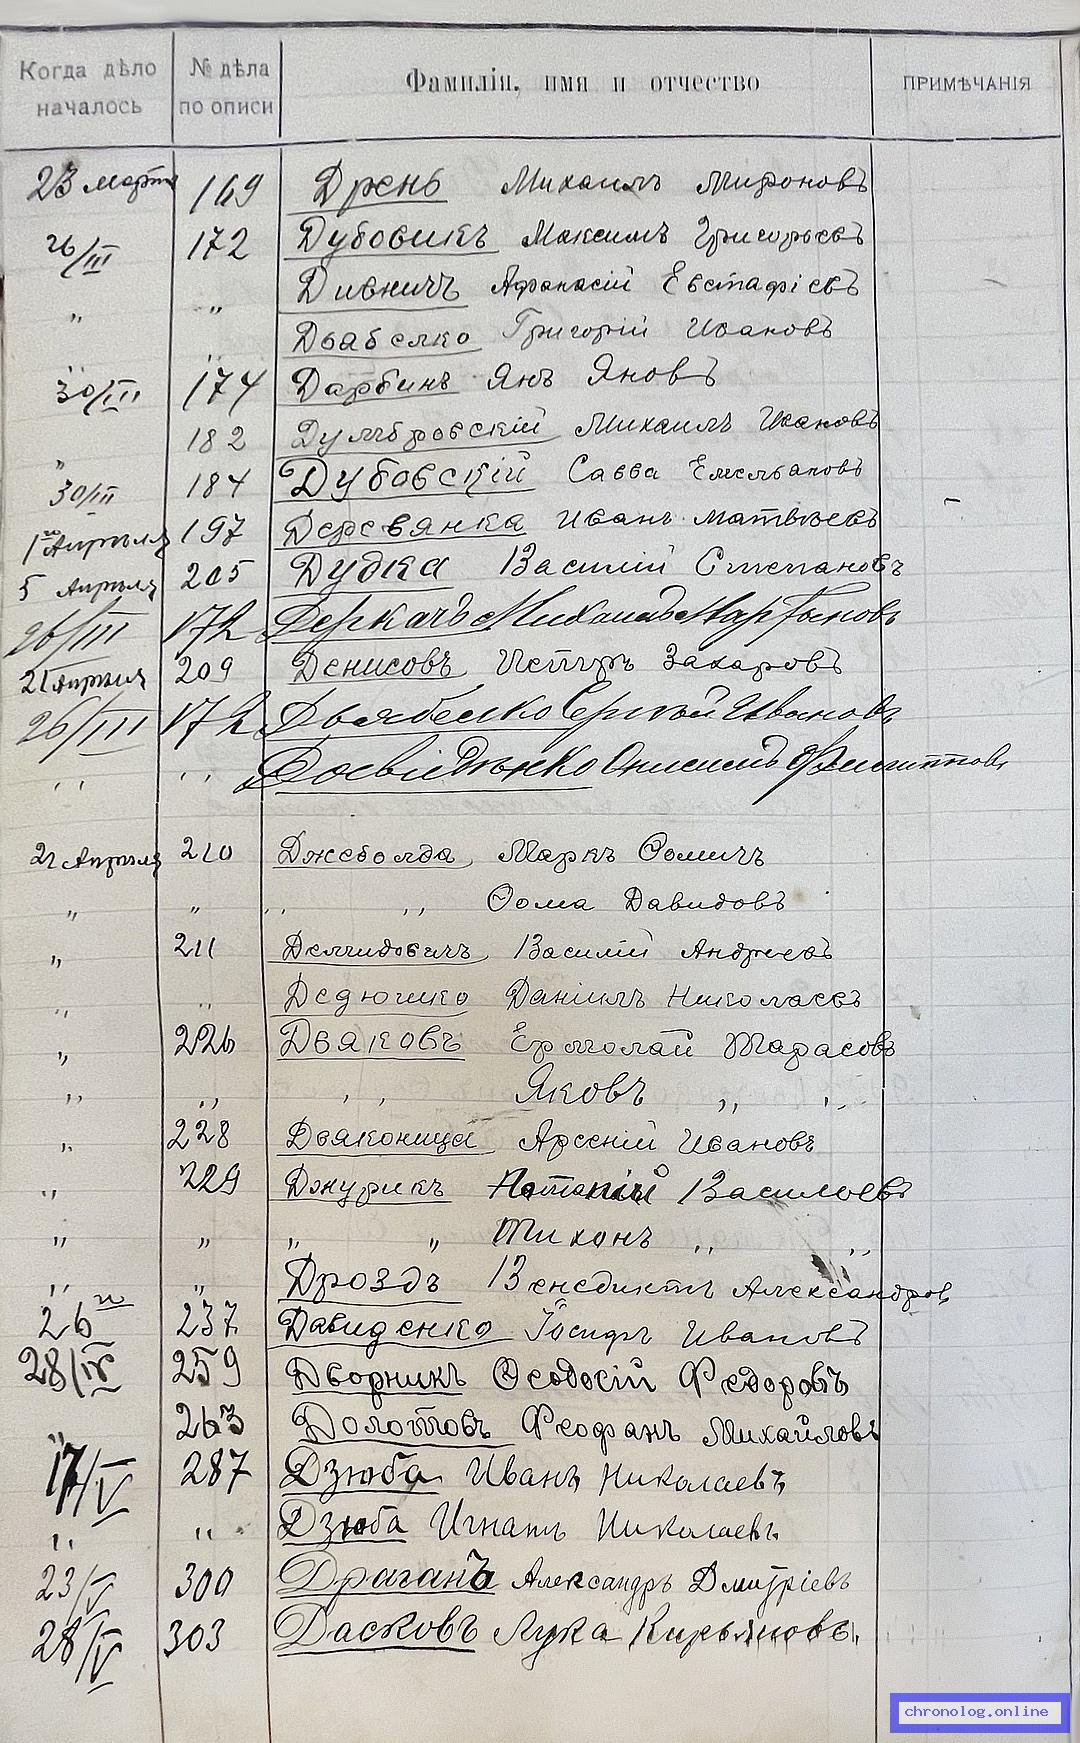 Когда дѣло началось № дѣла по описи Фамилія, имя и отчество ПРИМѢЧАНІЯ
23 марта 169 Дрень Михаилъ Мироновъ
26/III 172 Дубовикъ Максимъ Григорьевъ
" " Дивничъ Афанасій Евстафіевъ
" " Дьабелко Григорій Ивановъ
30/III 174 Дарбинъ Янъ Яновъ
" 182 Думбровскій Михаилъ Ивановъ
30/III 184 Дубовскій Савва Емельяновъ
1го Апрѣля 197 Деревянка Иванъ Матвѣевъ
5 Апрѣля 205 Дудка Василій Степановъ
26/III 172 Деркачъ Михаилъ Мартыновъ
21 Апрѣля 209 Денисовъ Петръ Захаровъ
26/III 172 Дьябелко Сергѣй Ивановъ
" " Досвіденко Онисимъ Филипповъ
21 Апрѣля 210 Джеболда Маркъ Ѳомичъ
" " " " Ѳома Давидовъ
" 211 Демидовичъ Василій Андреевъ
" " Дедюшко Даніилъ Николаевъ
" 226 Дьяковъ Ермолай Тарасовъ
" " " " Яковъ " "
" 228 Дьяконица Арсеній Ивановъ
" 229 Джурикъ Василіевъ
" " " " Тихонъ " "
" " Дроздъ Венедиктъ Александровъ
26го 237 Давиденко Іосифъ Ивановъ
28/IV 259 Дворникъ Ѳеодосій Федоровъ
" 263 Долотовъ Феофанъ Михайловъ
17/V 287 Дзюба Иванъ Николаевъ
" " Дзюба Игнатъ Николаевъ
23/V 300 Драганъ Александръ Дмитріевъ
28/V 303 Дасковъ Лука Кирьяновъ
chronolog.online